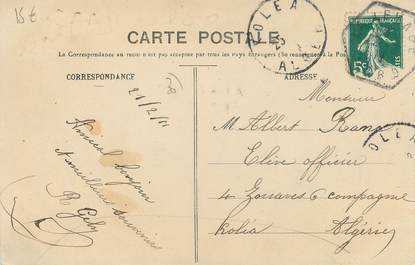 15€
KOLEA
ALGER
CARTE POSTALE
La Correspondance au recto n'est pas acceptée par tous les Pays Etrangers (Se renseigner à la Poste)
CORRESPONDANCE
ADRESSE
REPUBLIQUE FRANÇAISE
5c
POSTES
21/2/11
Amical bonjour
et meilleurs souvenirs
R
Monsieur
M Albert
Elève officier
4 Zouaves 6 compagnie
kolia Algérie